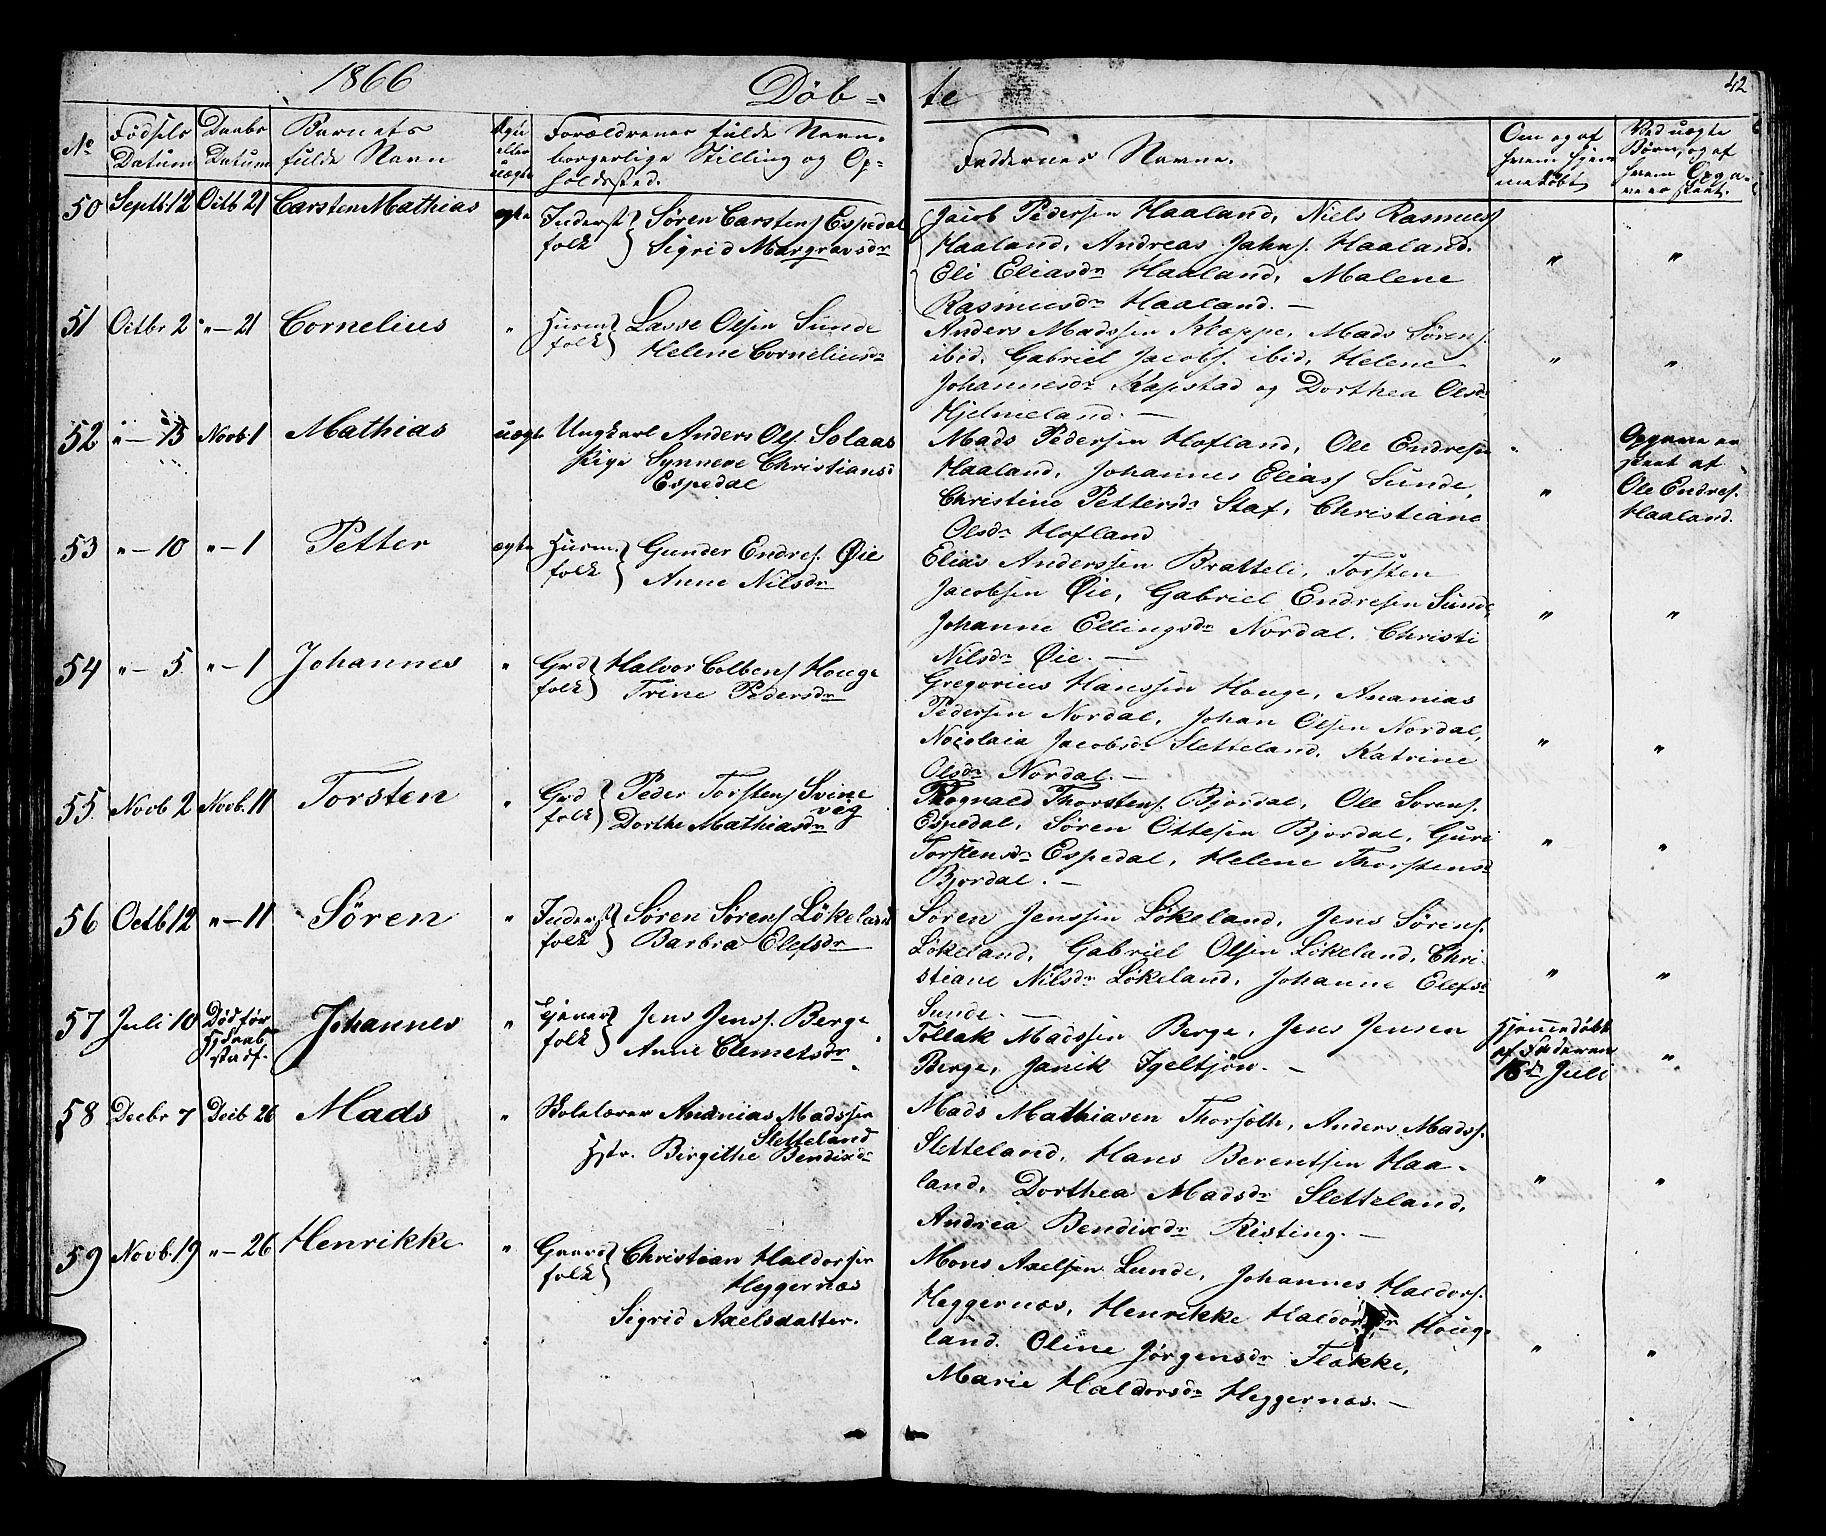 1866 Døb- te 42
No Fødsels Datum Daabs Datum Barnets fulde Navn Ægte eller uægte Forældrenes fulde Navn, borgerlige Stilling og Opholdssted. Faddernes Navne. Om og af hvem hjemmedøbt Ved uægte Børn, og af hvem Opgave er skeet.
50 Septb. 12 Octb 21 Carsten Mathias ægte Inderst folk } Søren Carstens Espedal
Sigrid Margravsdr
Jacob Pedersen Haaland, Niels Rasmus
Haaland, Andreas Johns. Haaland.
Eli Eliasdr Haaland, Malene
Rasmusdr Haaland. — " "
51 Octbr 2 " — 21 Cornelius " Husm folk } Lasse Olsen Sunde
Helene Corneliusdr
Anders Madssen Kleppe, Mads Sørens.
ibid, Gabriel Jacobs. ibid, Helene
Johannesdr Kapstad og Dorthea Olsdr
Hjelmeland. — " "
52 " — 15 Novb. 1 Mathias uægte Ungkarl Anders Ols Solaas
Pige Synneve Christiansd
Espedal
Mads Pedersen Hofland, Ole Endresen
Haaland, Johannes Elias Sunde,
Christine Pettersdr Staf, Christiane
Olsdr Hofland "
Opgave er
skeet af
Ole Endres.
Haaland.
53 " — 10 " — 1 Petter ægte Husm. folk } Gunder Endres. Øie
Anne Nilsdr
Elias Anderssen Bratteli, Torsten
Jacobsen Øie, Gabriel Endresen Sunde,
Johanne Ellingsdr Nordal. Christi
Nilsdr Øie. — " "
54 " — 5 " — 1 Johannes " Grd folk } Halvor Colbens Houge
Trine Pedersdr
Gregorius Hanssen Houge, Ananias
Pedersen Nordal, Johan Olsen Nordal,
Nicolaia Jacobsdr Sletteland, Katrine
Olsdr Nordal. — " "
55. Novb 2 Novb. 11 Torsten " Grd folk } Peder Torstens Svine
veg
Dorthe Mathiasdr
Rognald Thorstens. Bjordal, Ole Sorens.
Espedal, Søren Ottesen Bjordal, Guri
Torstensdr Espedal, Helene Thorstensd
Bjordal. — " "
56 Octb 12 " — 11 Søren " Inderst folk } Søren Sørens Løkeland
Barbra Elefsdr
Søren Jenssen Løkeland, Jens Sørens.
Løkeland, Gabriel Olsen Løkeland, Chri-
stiane Nilsdr Løkeland, Johanne Elefsd
Sunde. — " "
57 Juli 10 Død før Johannes " Tjener folk } Jens Jens. Berge
Anne Clemetsdr
Tollak Madssen Berge, Jens Jensen
Berge, Janik Igeltjøn. —
Hjemmedøbt
af Faderen
15de Juli "
58 Decbr 7 Decb 26 Mads " Skolelærer Ananias Madssen
Sletteland
Hstr. Birgithe Bendixdr
Mads Mathiasen Thorsolth, Anders Madss.
Sletteland, Hans Berentsen Haa-
land, Dorthea Madsdr Sletteland,
Andrea Bendixdr Risting. — " "
59 Novb. 19 " — 26 Henrikke " Gaard folk } Christian Haldorsen
Heggernæs
Sigrid Axelsdatter.
Mons Axelsen Lunde, Johannes Haldors.
Heggernæs, Henrikke Haldorsdr Houg-
land. Oline Jørgensdr Flække,
Marie Haldorsdr Heggernæs. — " "